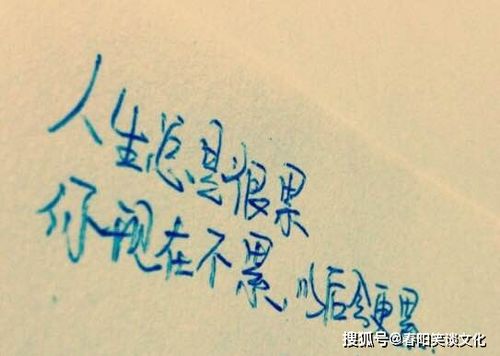 人生总是很累
你现在不累,以后会更累
搜狐号@春阳笑谈文化